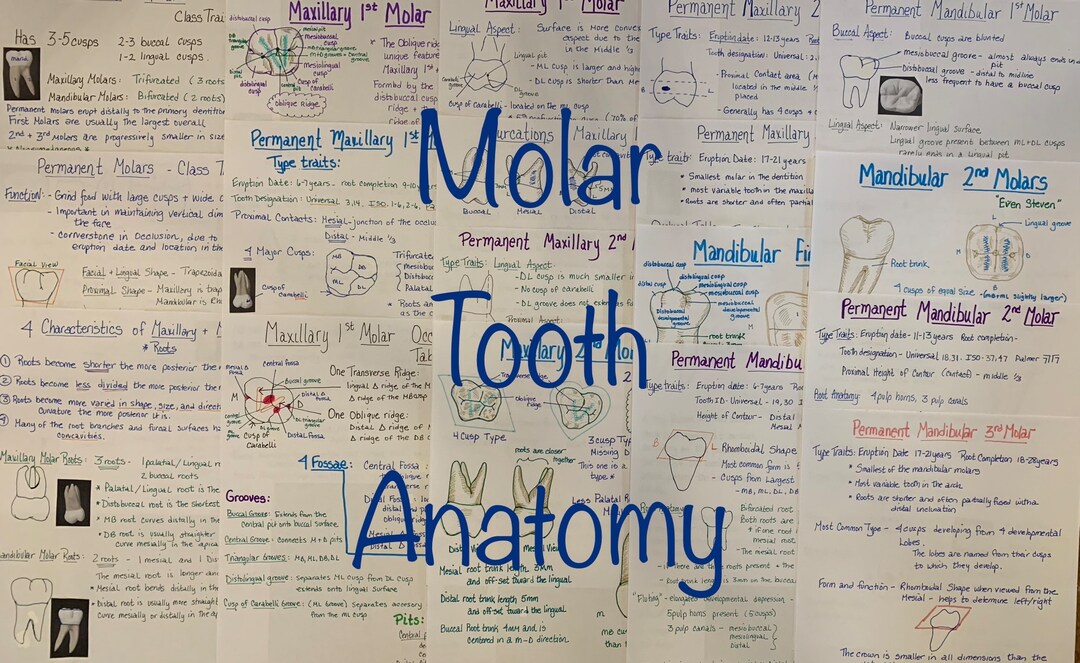 Molar
Tooth
Anatomy
Class Trai
Has 3-5 cusps
2-3 buccal cusps
1-2 lingual cusps.
Maxillary Molars: Trifurcated (3 roots
Mandibular Molars: Bifurcated (2 roots)
Permanent molars erupt distally to the primary dentitio
First Molars are usually the largest overall
2nd + 3rd molars are progressively smaller in size
Permanent Molars - Class T
Function: - Grind food with large cusps + wide
- Important in maintaining vertical dim
the face
- cornerstone in Occlusion, due to
eruption date and location in the
Facial View
Facial + Lingual Shape - Trapezoida
Proximal Shape - Maxillary is trap
Mandibular is Rh
4 Characteristics of Maxillary +
* Roots
① Roots become shorter the more posterior the
② Roots become less divided the more posterior the
③ Roots become more varied in shape, size, and direct
curvature the more posterior it is.
④ Many of the root branches and furcal surfaces ha
concavities.
Maxillary Molar Roots:
3 roots - 1 palatal/Lingual r
2 buccal roots
* Palatal/Lingual root is the
* Distobuccal root is the shortest
* MB root curves distally in the
* DB root is usually straighter
curve mesially in the apica
Mandibular Molar Roots:
2 roots - 1 mesial and 1 Dis
The mesial root is longer an
* Mesial root bends distally in the
* Distal root is usually more straigh
curve mesially or distally in the ap
Maxillary 1st Molar
distobuccal cusp
mesiobuccal cusp
mesiolingual cusp
distolingual cusp
cusp of carabelli
Oblique Ridge.
The Oblique rid
unique feature
Maxillary 1st
Formed by the
distobuccal cusp
ridge +
Permanent Maxillary 1st
Type traits:
Eruption Date: 6-7 years. root completion 9-10
Tooth Designation: Universal 3,14, ISO. 1-6, 2-6,
Proximal Contacts: Mesial - junction of the occlus
Distal - Middle ⅓
4 Major Cusps:
MB
DB
ML
DL
Cusp of carabelli
Trifurcate
mesiobuc
Distobuc
Palatal
* Roots ar
as the c
Maxillary 1st Molar Occ
Tab
central fossa
Buccal groove
Distal Fossa
Cusp of Carabelli
One Transverse Ridge:
lingual Δ ridge of the M
Δ ridge of the MB cusp
One Oblique ridge:
Distal Δ ridge of
Δ ridge of the DB C
4 Fossae:
Central Fossa
Grooves:
Buccal Groove: Extends from the
Central pit onto buccal surface.
Central Groove: connects M + D pits
Triangular Grooves: MB, ML, DB, DL
Distolingual groove: separates ML cusp from DL cusp
extends onto lingual surface
Cusp of Carabelli Groove: (ML Groove) separates accesory
from the ML cusp
Pits:
Maxillary 1st Molar
Lingual Aspect:
Surface is more convex
aspect due to the
in the Middle ⅓
Lingual pit
- ML cusp is larger and high
DL groove
- DL cusp is shorter than Me
Cusp of Carabelli - located on the ML cusp
Furcations
Maxillary
Buccal
Mesial
Distal
Permanent Maxillary 2nd
Type Traits: Lingual Aspect
- DL cusp is much smaller in
- No cusp of carabelli
- DL groove does not extend as f
Proximal Aspect:
Maxillary 2nd Mo
Transverse Ridge
Oblique ridge
4 Cusp Type
3 cusp Typ
Missing D
This one is a
type. *
roots are closer
together
Mesial root trunk length 3mm
and off-set toward the lingual
Distal root trunk length 5mm
and off-set toward the lingual.
Buccal Root trunk 4mm and is
centered in a m-D direction.
Permanent Maxillary 2
Type Traits:
Eruption Date: 12-13 years
Tooth designation: Universal: 2
Proximal Contact area
located in the middle
placed
- Generally has 4 cusps
Permanent Maxillary
Type trait: Eruption Date: 17-21 years
* Smallest molar in the dentition
* most variable tooth in the maxilla
* Roots are shorter and often partial
Mandibular Fi
distobuccal cusp
distolingual cusp
distal cusp
mesiolingual cusp
mesiobuccal cusp
mesiobuccal
developmental
groove
Distobuccal
developmental
groove
root trunk
Permanent Mandibu
Type traits: Eruption date: 6-7 years Roo
Tooth ID: Universal - 19, 30
Height of Contour - Distal
Mesial
Rhomboidal Shape
Most common form is
Cusps from Largest
- MB, ML, DL, DB
Bifurcated root
Both roots are
The mesial root
5 pulp horns present (5 cusps)
3 pulp canals - mesiobuccal
mesiolingual
Distal
Permanent Mandibular 1st Molar
Buccal Aspect:
Buccal cusps are blunted
mesiobuccal groove - almost always ends in
Distobuccal groove - distal to midline
less frequent to have a buccal cusp
Lingual Aspect: Narrower lingual surface.
Lingual groove present between ML + DL cusps
rarely ends in a lingual pit
Mandibular 2nd Molars
"Even Steven"
Lingual groove
Root trunk
4 cusps of equal size - (MB + ML slightly larger)
Permanent Mandibular 2nd Molar
Type Traits: Eruption date - 11-13 years Root completion-
Tooth designation - Universal 18,31. ISO - 37,47 Palmer 7|7
Proximal Height of Contour (contact) - middle ⅓
Root Anatomy: 4 pulp horns, 3 pulp canals
Permanent Mandibular 3rd Molar
Type Traits: Eruption Date 17-21 years Root Completion 18-25 years
* Smallest of the mandibular molars
* Most variable tooth in the arch
* Roots are short and often partially fused with a
distal inclination
Most Common Type - 4 cusps developing from 4 developmental
Lobes.
The lobes are named from their cusps
to which they develop.
Form and function - Rhomboidal Shape when viewed from the
Mesial - helps to determine left/right
The crown is smaller in all dimensions than the